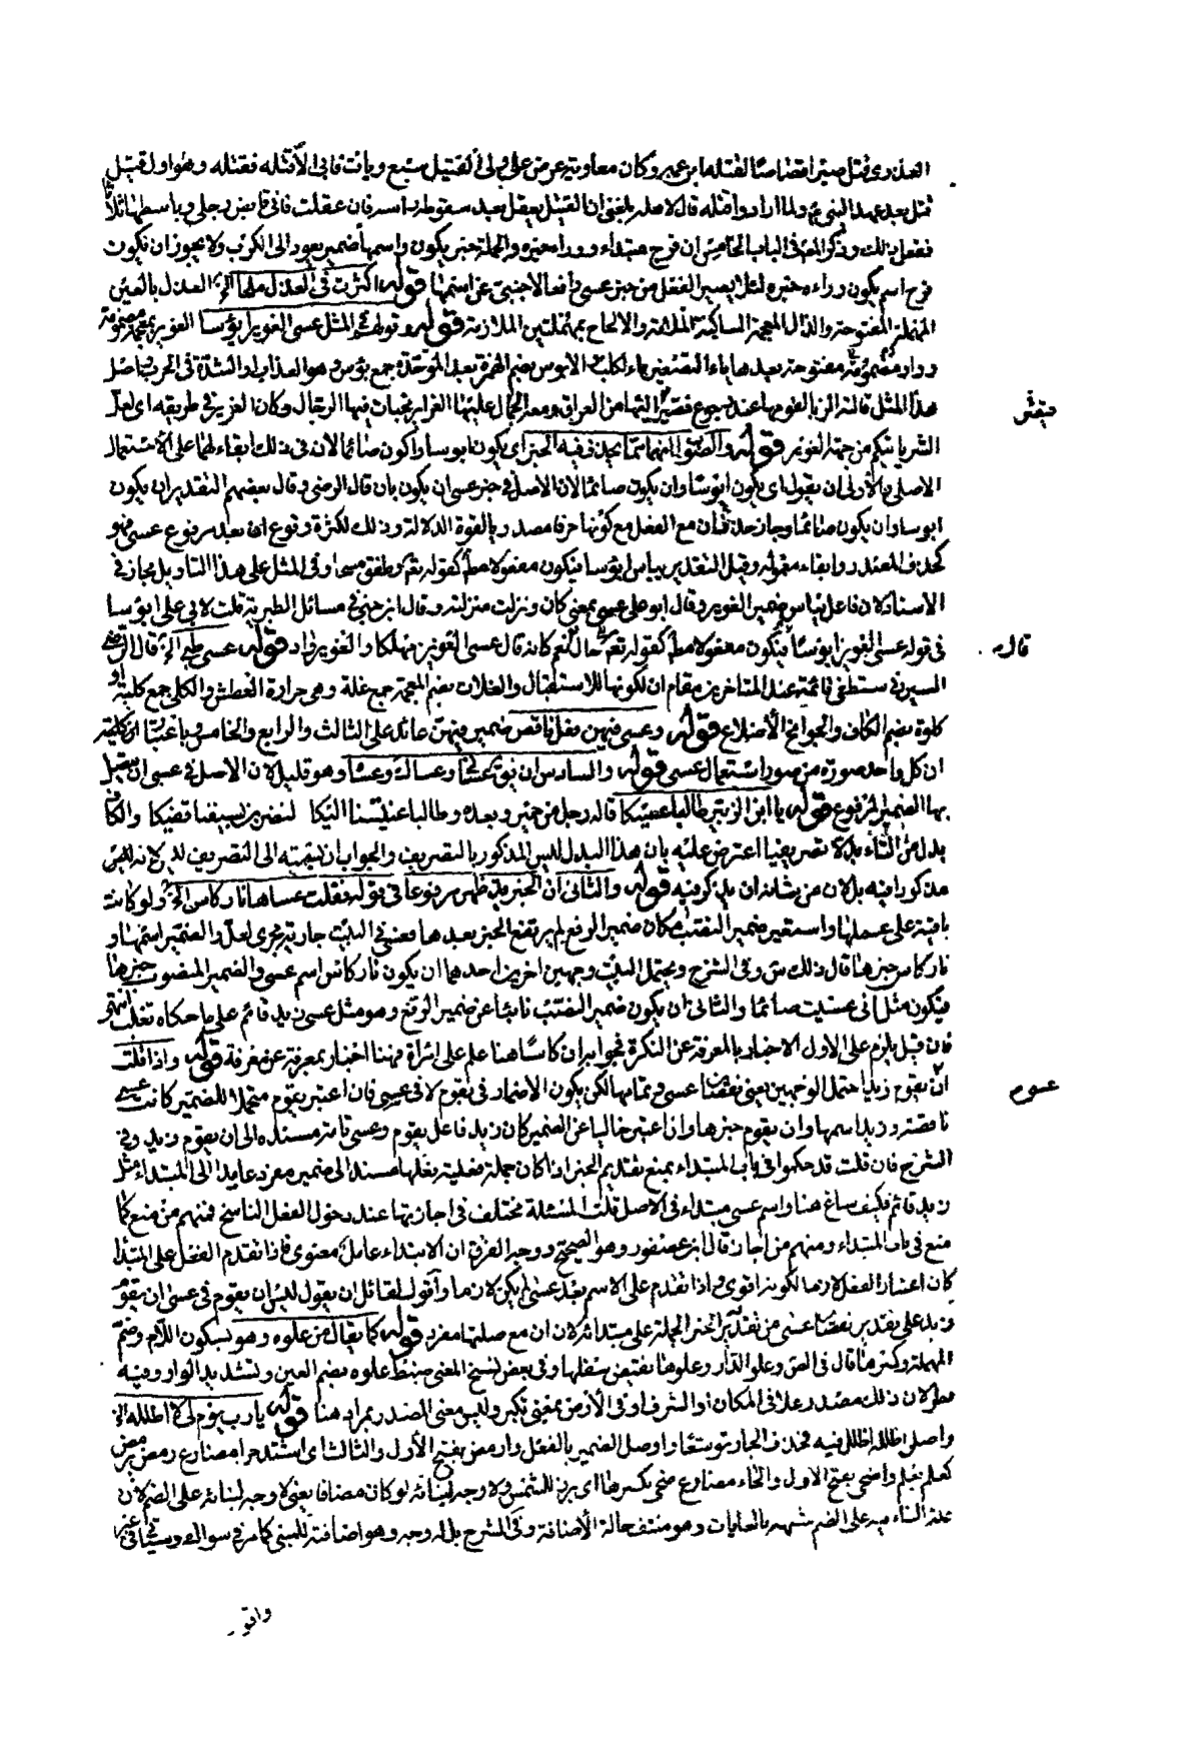 العذرى قتل صبرا قصاصا لقتله ابن عمه وكان معاوية عرض على ولى القتيل سبع ديات فابى الا قتله فقتله وهو اول قتيل
قتل بعد عهد النبى ولما ارادوا قتله قال لاهله بلغنى ان القتيل يعقل بعد سقوط راسه فان عقلت فانى قابض رجلى وباسطها ثلاثا
ففعل ذلك وذكر المص فى الباب الخامس ان فرج مبتداء ووراءه خبره والجملة خبر يكون واسمها ضمير يعود الى الكرب ولا يجوز ان يكون
فرج اسم يكون ووراءه خبره لئلا يصير الفعل من خبر عسى رافعا لاجنبى عن اسمها قوله اكثرت فى العذل ملحا الخ العذل بالعين
المهملة المفتوحة والذال المعجمة الساكنة الملامة والالحاح بمهملتين الملازمة قوله وقولهم فى المثل عسى الغوير ابؤسا الغوير بمعجمة مضمومة
وواو مفتوحة بعدها ياء التصغير ماء لكلب الابوس بضم الهمزة بعد الموحدة جمع بؤس وهو العذاب او الشدة فى الحرب اصل
هذا المثل قالته الزبا لقومها عند رجوع قصير اليها من العراق ومعه الجمال عليها الغرائر مخبات فيها الرجال وكان الغوير فى طريقه اى لعل
الشر ياتيكم من جهة الغوير قوله والصواب انهما مما حذف فيه الخبر اى يكون ابوسا واكون صائما لان فى ذلك ابقاء لهما على الاستعمال
الاصلى والاولى ان يقول اى يكون ابوسا وان يكون صائما لان الاصل فى خبر عسى ان يكون بان قال الرضى وقال بعضهم التقدير ان يكون
ابوسا وان يكون صائما وجاز حذف ان مع الفعل مع كونها حرفا مصدريا لقوة الدلالة وذلك لكثرة وقوع ان بعد مرفوع عسى فهو
كحذف المصدر وابقاء معموله وقيل التقدير يباس ابؤسا فيكون مفعولا مطلقا كقوله تعالى فطفق مسحا وفى المثل على هذا التاويل مجاز فى
الاسناد لان فاعل يباس ضمير الغوير وقال ابو على عسى بمعنى كان ونزلت منزلته وقال ابن جنى فى مسائل الطبرية قلت لابى على ابؤسا
فى قوله عسى الغوير ابؤسا فيكون حال نعم كانه قال عسى الغوير مهلكا والغوير واد قوله عسى طيئ الخ قال الرضى
السين فى ستطفئ قائمة عند المتاخرين مقام ان لكونها للاستقبال والغلات بضم المعجمة جمع غلة وهى حرارة العطش والكلى جمع كلية او
كلوة بضم الكاف والجوانح الاضلاع قوله وعسى فيهن فعل ناقص ضمير فيهن عائد على الثالث والرابع والخامس باعتبار
ان كل واحد صورة من صور استعمال عسى قوله والسادس ان يقال عسانى وعساك وعساه وهو قليل لان الاصل فى عسى ان يتصل
بها الضمير المرفوع قوله يا ابن الزبير طالما عصيكا قاله رجل من حمير وبعده وطالما عنيتنا اليكا لنضربن بسيفنا قفيكا والكاف
بدل من التاء بدلا تصريفيا اعترض عليه بان هذا البدل ليس المذكور بالتصريف والجواب ان نسبته الى التصريف لا لانه ليس
مذكورا فيه بل لان من شانه ان يذكر فيه قوله والثانى ان الخبر قد ظهر مرفوعا فى قوله فقلت عساها نار كاس الخ ولو كانت
باقية على عملها واستعير ضمير النصب مكان ضمير الرفع لم يرتفع الخبر بعدها فعسى فى البيت جارية مجرى لعل والضمير اسمها و
نار كاس خبرها قال ذلك س وفى الشرح ويحتمل البيت وجهين اخرين احدهما ان يكون نار كاس اسم عسى والضمير المنصوب خبرها
فيكون مثل انى عسيت صائما والثانى ان يكون ضمير النصب نائبا عن ضمير الرفع وهو مثل عسى زيد قائم على ما حكاه ثعلب انتهى
فان قيل يلزم على الاول الاخبار بالمعرفة عن النكرة فجوابه ان كاسا هنا علم على امراة فهنا اخبار بمعرفة عن معرفة قوله واذا قلت
ان يقوم زيد احتمل الوجهين يعنى نقصان عسى وتمامها لكن يكون الاضمار فى يقوم لا فى عسى فان اعتبر يقوم متحملا للضمير كانت عسى
ناقصة وزيد اسمها وان يقوم خبرها واذا اعتبر خاليا عن الضمير كان زيد فاعل يقوم وعسى تامة مسندة الى ان يقوم زيد وفى
الشرح فان قلت قد حكموا فى باب المبتداء بمنع تقديم الخبر اذا كان جملة فعلية فعلها مسند الى ضمير مفرد عايد الى المبتداء مثل
زيد قائم فكيف ساغ هنا واسم عسى مبتداء فى الاصل قلت المسئلة مختلف فى اجازتها عند دخول الفعل الناسخ فمنهم من منع كما
منع فى باب المبتداء ومنهم من اجاز قال ابن عصفور وهو الصحيح ووجه الفرق ان الابتداء عامل معنوى فاذا تقدم الفعل على المبتدا
كان اعتبار الفعل لازما لكونه اقوى واذا تقدم على الاسم بعد عسى لم يكن لازما واقول لقائل ان يقول ليس ان يقوم فى عسى ان يقوم
زيد على تقدير نقصان عسى من تقديم الخبر الجملة على مبتدائه لان ان مع صلتها مفرد قوله كما يقال من علوه وهو بسكون اللام وضم
المهملة وكسرها قال فى الص وعلو الدار وعلوها نقيض سفلها وفى بعض نسخ المغنى ضبط علوه بضم العين وتشديد الواو وفيه
نظر لان ذلك مصدر علا فى المكان او الشرف او فى الارض بمعنى تكبر وليس معنى المصدر بمراد هنا قوله يا رب يوم لى لا اظلله الخ
واصل اظلله اظلل فيه فحذف الجار توسعا واوصل الضمير بالفعل وارمض بفتح الاول والثالث اى اشتد حرا مضارع رمض
كعلم يعلم واضحى بفتح الاول والحاء مضارع ضحى بكسرها اى برز للشمس ولا وجه لبنائه لو كان مضافا يعنى لا وجه لبنائه على الضم لان
علة البناء فيه على الضم شبهه بالغايات وهو منتف حالة الاضافة وفى الشرح بل له وجه وهو اضافته للمبنى كما مر فى سواك
قاله
واقو